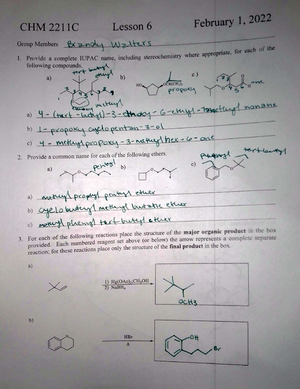 CHM 2211C Lesson 6 February 1, 2022
Group Members Brandy Walters
1. Provide a complete IUPAC name, including stereochemistry where appropriate, for each of the
following compounds.
tert-butyl
ethyl
a) b) c)
propoxy
methyl
a) 4-(tert-butyl)-3- -6-ethyl- nonane
b) 1-propoxy cyclopentan-3-ol
c) 4-methyl propoxy-3-methyl hex-6-one
2. Provide a common name for each of the following ethers.
a) pentyl b) c) tert-butyl
a) methyl propyl pentyl ether
b) cyclobutyl methyl ether
c) phenyl tert-butyl ether
3. For each of the following reactions place the structure of the major organic product in the box
provided. Each numbered reagent set above (or below) the arrow represents a complete separate
reaction; for these reactions place only the structure of the final product in the box.
a)
1) Hg(OAc)2,CH3OH
2) NaBH4
OCH3
b)
HBr
Δ
OH
Br